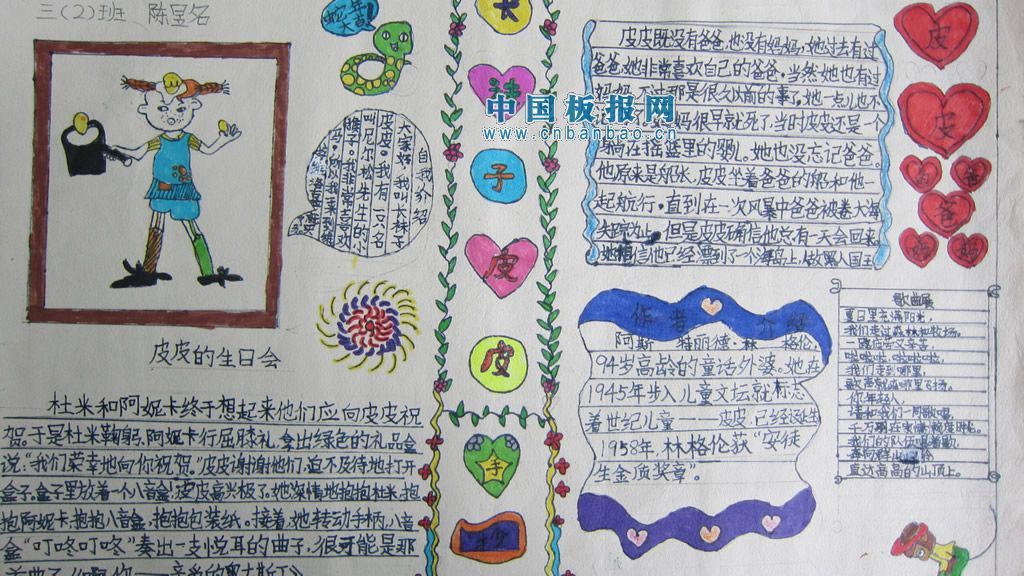 三(2)班 陈昱名
皮皮的生日会
杜米和阿妮卡终于想起来他们应向皮皮祝
贺于是杜米鞠躬,阿妮卡行屈膝礼,拿出绿色的礼品盒
说:“我们荣幸地向你祝贺。”皮皮谢谢他们,迫不及待地打开
盒子,盒子里放着一个八音盒,皮皮高兴极了,她深情地抱抱杜米,抱
抱阿妮卡,抱抱八音盒,抱抱包装纸。接着,她转动手柄,八音
盒“叮咚叮咚”奏出一支悦耳的曲子,很可能是那
蛇年
吉!
自我介绍
大家好,我叫长袜子
皮皮。我有一只名
叫尼尔松先生的小
猴子。
长
袜
子
皮
皮
手
抄
中国板报网
www.cnbanbao.cn
皮皮既没有爸爸,也没有妈妈,她过去有过
爸爸,她非常喜欢自己的爸爸。当然她也有过
妈妈,不过那是很久以前的事了,她一点儿也不
妈很早就死了,当时皮皮还是一个
躺在摇篮里的婴儿。她也没忘记爸爸。
他原来是船长,皮皮坐着爸爸的船和他一
起航行,直到在一次风暴中爸爸被卷大海
失踪为止。但是皮皮确信他总有一天会回来
她相信他已经漂到了个海岛上,做黑人国王
皮
皮
爸
爸
妈
妈
作者介绍
阿斯特丽德·林格伦
94岁高龄的童话外婆。她在
1945年步入儿童文坛就标志
着世纪儿童——皮皮,已经诞生
1958年,林格伦获“安徒
生金质奖章”。
歌曲展
夏日里充满阳光,
我们走过森林和牧场。
啦啦啦,啦啦啦啦,
我们走到哪里,
你年轻人,
请和我们一同歌唱,
我们的队伍唱着歌,
直达高高的山顶上。